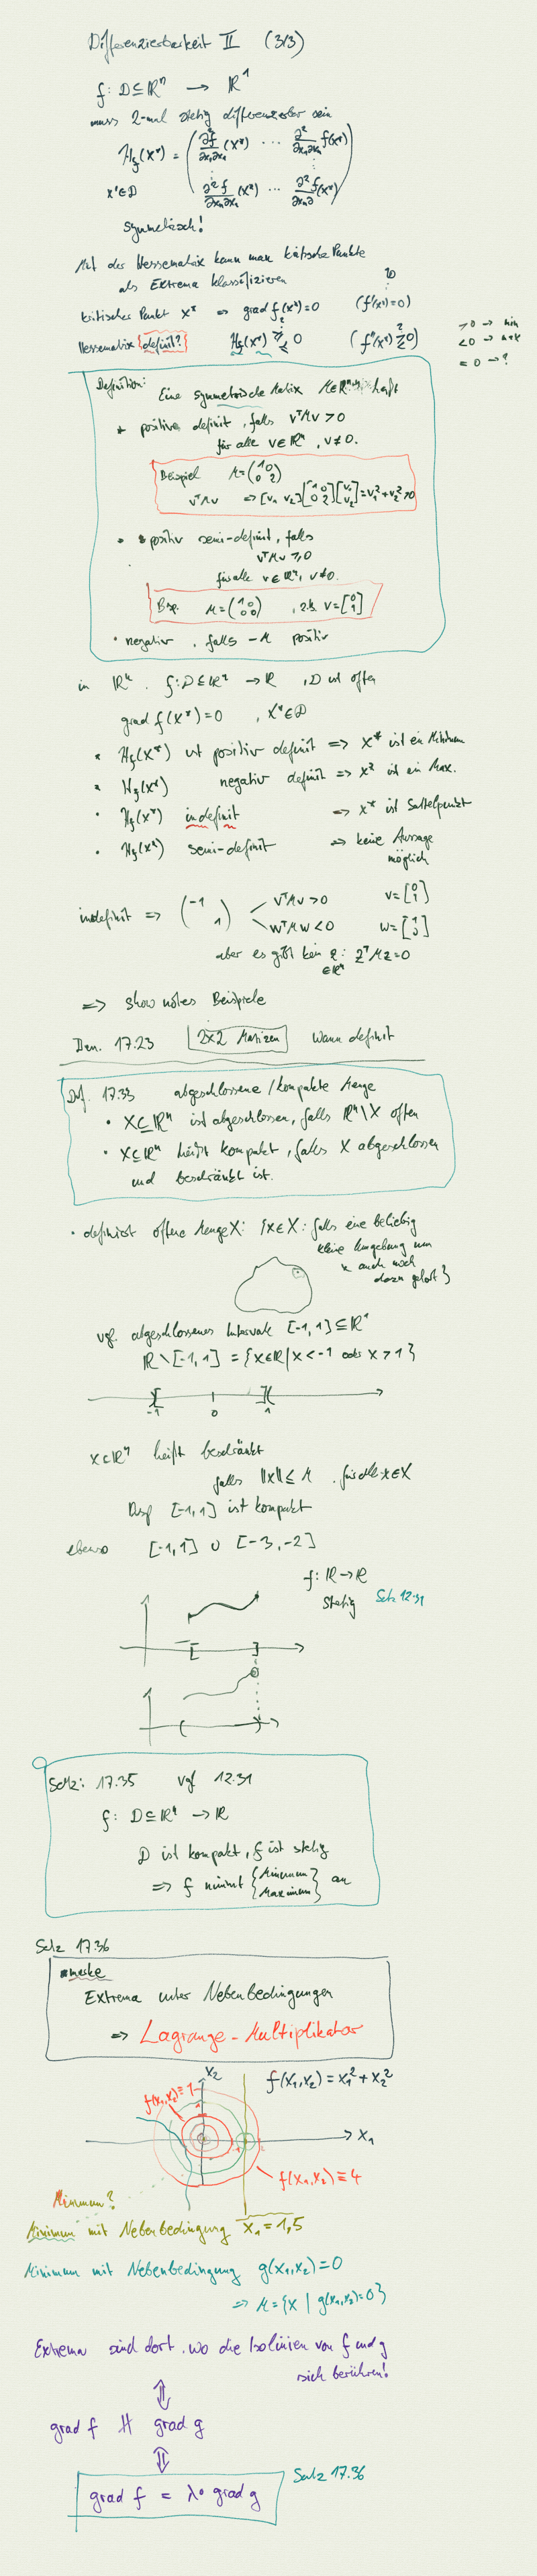 Differenzierbarkeit II (3/3)
f: D ⊆ ℝⁿ → ℝ¹
muss 2-mal stetig differenzierbar sein
H_f(x*) = ( ∂²f/∂x₁∂x₁ (x*) ... ∂²/∂x₁∂xₙ f(x*)
x* ∈ D ∂²f/∂xₙ∂x₁ (x*) ... ∂²f/∂xₙ∂ (x*) )
symmetrisch!
Mit der Hessematrix kann man kritische Punkte
als Extrema klassifizieren
kritischer Punkt x* ⇔ grad f(x*) = 0 (f'(x*) = 0)
Hessematrix {definit?} H_f(x*) ≷ 0 (f''(x*) ≷ 0)
> 0 → min
< 0 → max
= 0 → ?
Definition: Eine symmetrische Matrix M ∈ ℝⁿˣⁿ heißt
* positiv definit, falls vᵀMv > 0
für alle v ∈ ℝⁿ, v ≠ 0.
Beispiel M = (1 0 / 0 2)
vᵀMv ⇒ [v₁ v₂] [1 0 / 0 2] [v₁ / v₂] = v₁² + v₂² > 0
• positiv semi-definit, falls
vᵀMv ≥ 0
für alle v ∈ ℝⁿ, v ≠ 0.
Bsp. M = (1 0 / 0 0) , z.B. v = [0 / 1]
• negativ , falls -M positiv
in ℝⁿ. f: D ⊆ ℝⁿ → ℝ , D ist offen
grad f(x*) = 0 , x* ∈ D
• H_f(x*) ist positiv definit ⇒ x* ist ein Minimum
• H_f(x*) negativ definit ⇒ x* ist ein Max.
• H_f(x*) indefinit ⇒ x* ist Sattelpunkt
• H_f(x*) semi-definit ⇒ keine Aussage
möglich
indefinit ⇒ (-1 / 1) vᵀMv > 0 v = [0 / 1]
wᵀMw < 0 w = [1 / 0]
aber es gibt kein z: zᵀMz = 0
∈ ℝⁿ
⇒ show notes Beispiele
Bem. 17.23 2x2 Matrizen wann definit
Def. 17.33 abgeschlossene / kompakte Menge
• X ⊆ ℝⁿ ist abgeschlossen, falls ℝⁿ \ X offen
• X ⊆ ℝⁿ heißt kompakt, falls X abgeschlossen
und beschränkt ist.
• definiert offene Menge X: {x ∈ X: falls eine beliebig
kleine Umgebung um
x auch noch
dazu gehört}
vgl. abgeschlossenes Intervall [-1,1] ⊆ ℝ¹
ℝ \ [-1,1] = {x ∈ ℝ | x < -1 oder x > 1}
-1 0 1
X ⊂ ℝⁿ heißt beschränkt
falls ||x|| ≤ M , für alle x ∈ X
Bsp [-1,1] ist kompakt
ebenso [-1,1] ∪ [-3,-2]
f: ℝ → ℝ
stetig Satz 12.31
Satz: 17.35 vgl 12.31
f: D ⊆ ℝⁿ → ℝ
D ist kompakt, f ist stetig
⇒ f nimmt {Minimum / Maximum} an
Satz 17.36
merke
Extrema unter Nebenbedingungen
⇒ Lagrange-Multiplikator
x₂ f(x₁,x₂) = x₁² + x₂²
f(x₁,x₂) ≡ 1
x₁
f(x₁,x₂) ≡ 4
Minimum?
Minimum mit Nebenbedingung x₁ = 1,5
Minimum mit Nebenbedingung g(x₁,x₂) = 0
⇒ M = {x | g(x₁,x₂) = 0}
Extrema sind dort, wo die Isolinien von f und g
sich berühren!
⇕
grad f ∥ grad g
⇕
grad f = λ · grad g Satz 17.36